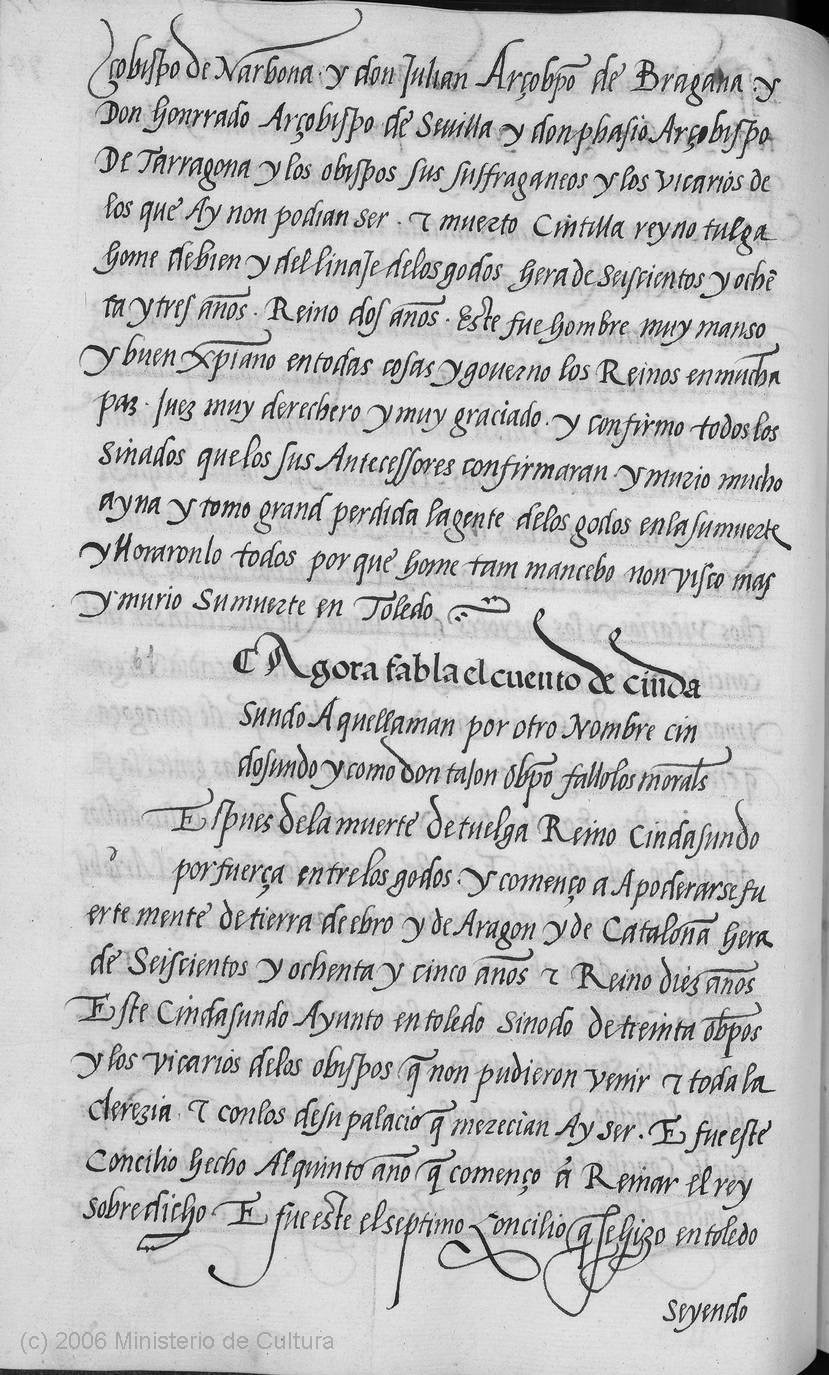 çobispo de Narbona · y don Julian Arçobp̄o de Bragaña · y
Don honrrado Arçobispo de Sevilla y don phasio Arçobispo
De Tarragona y los obispos sus suffraganeos y los vicarios de
los que Ay non podian ser · ⁊ muerto Cintilla reyno tulga
home de bien y del linaje delos godos hera de seiscientos y ochē
ta y tres años · Reino dos años · Este fue hombre muy manso
y buen xp̄iano en todas cosas y governo los Reinos en mucha
paz · Juez muy derechero y muy graciado · y confirmo todos los
Sinados que los sus Antecessores confirmaran · y murio mucho
ayna y tomo grand perdida la gente delos godos en la su muerte
y lloraronlo todos por que home tam mancebo non visco mas
y murio Su muerte en Toledo
61 ¶ Agora fabla el cuento de cinda
sundo A quellaman por otro Nombre cin
dosundo y como don tajon obp̄o fallo los morals
Espues dela muerte de tuelga Reino Cindasundo
por fuerça entre los godos · y començo a Apoderarse fu
erte mente de tierra de ebro y de Aragon y de Cataloña hera
de Seiscientos y ochenta y cinco años ⁊ Reino diez años
Este Cindasundo Ayunto en toledo Sinodo de treinta obp̄os
y los vicarios delos obispos q̄ non pudieron venir ⁊ toda la
clerezia · ⁊ con los de su palacio q̄ merecian Ay ser · E fue este
Concilio hecho Al quinto año q̄ començo a Reinar el rey
sobre dicho E fue este el septimo Concilio q̄ se hizo en toledo
seyendo
(c) 2006 Ministerio de Cultura